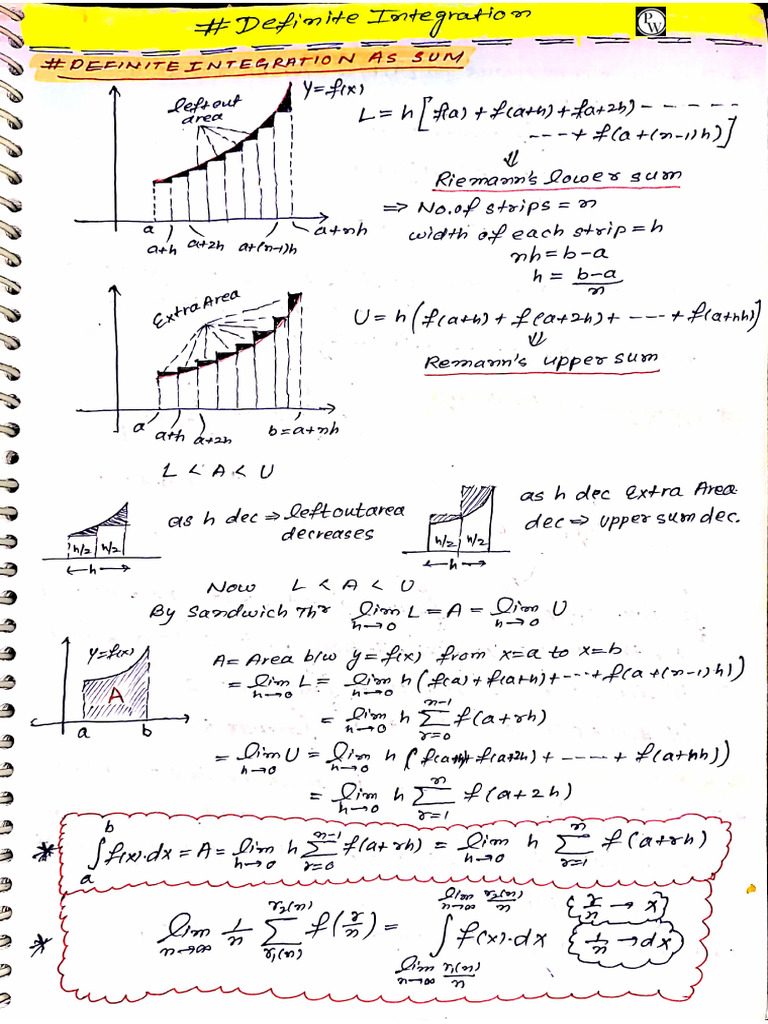 # Definite Integration
PW
# DEFINITE INTEGRATION AS SUM
left out area
y=f(x)
a
a+h
a+2h
a+(n-1)h
a+nh
L = h[f(a) + f(a+h) + f(a+2h) ------
---- + f(a+(n-1)h)]
⇓
Riemann's lower sum
⇒ No. of strips = n
width of each strip = h
nh = b-a
h = (b-a)/n
Extra Area
a
a+h
a+2h
b=a+nh
U = h(f(a+h) + f(a+2h) + ---- + f(a+nh)]
⇓
Remann's upper sum
L < A < U
h/2 h/2
←h→
as h dec ⇒ left out area
decreases
h/2 h/2
←h→
as h dec Extra Area
dec ⇒ upper sum dec.
Now L < A < U
By Sandwich Thr lim h→0 L = A = lim h→0 U
y=f(x)
A
a b
A = Area b/w y = f(x) from x=a to x=b
= lim h→0 L = lim h→0 h(f(a) + f(a+h) + ---- + f(a+(n-1)h))
= lim h→0 h ∑ r=0 n-1 f(a+rh)
= lim h→0 U = lim h→0 h (f(a+h) + f(a+2h) + ---- + f(a+nh))
= lim h→0 h ∑ r=1 n f(a+2h)
* ∫ a b f(x)·dx = A = lim h→0 h ∑ r=0 n-1 f(a+rh) = lim h→0 h ∑ r=1 n f(a+rh)
* lim n→∞ 1/n ∑ r1(n) r2(n) f(r/n) = ∫ lim n→∞ r1(n)/n lim n→∞ r2(n)/n f(x)·dx
{r/n → x}
{1/n → dx}